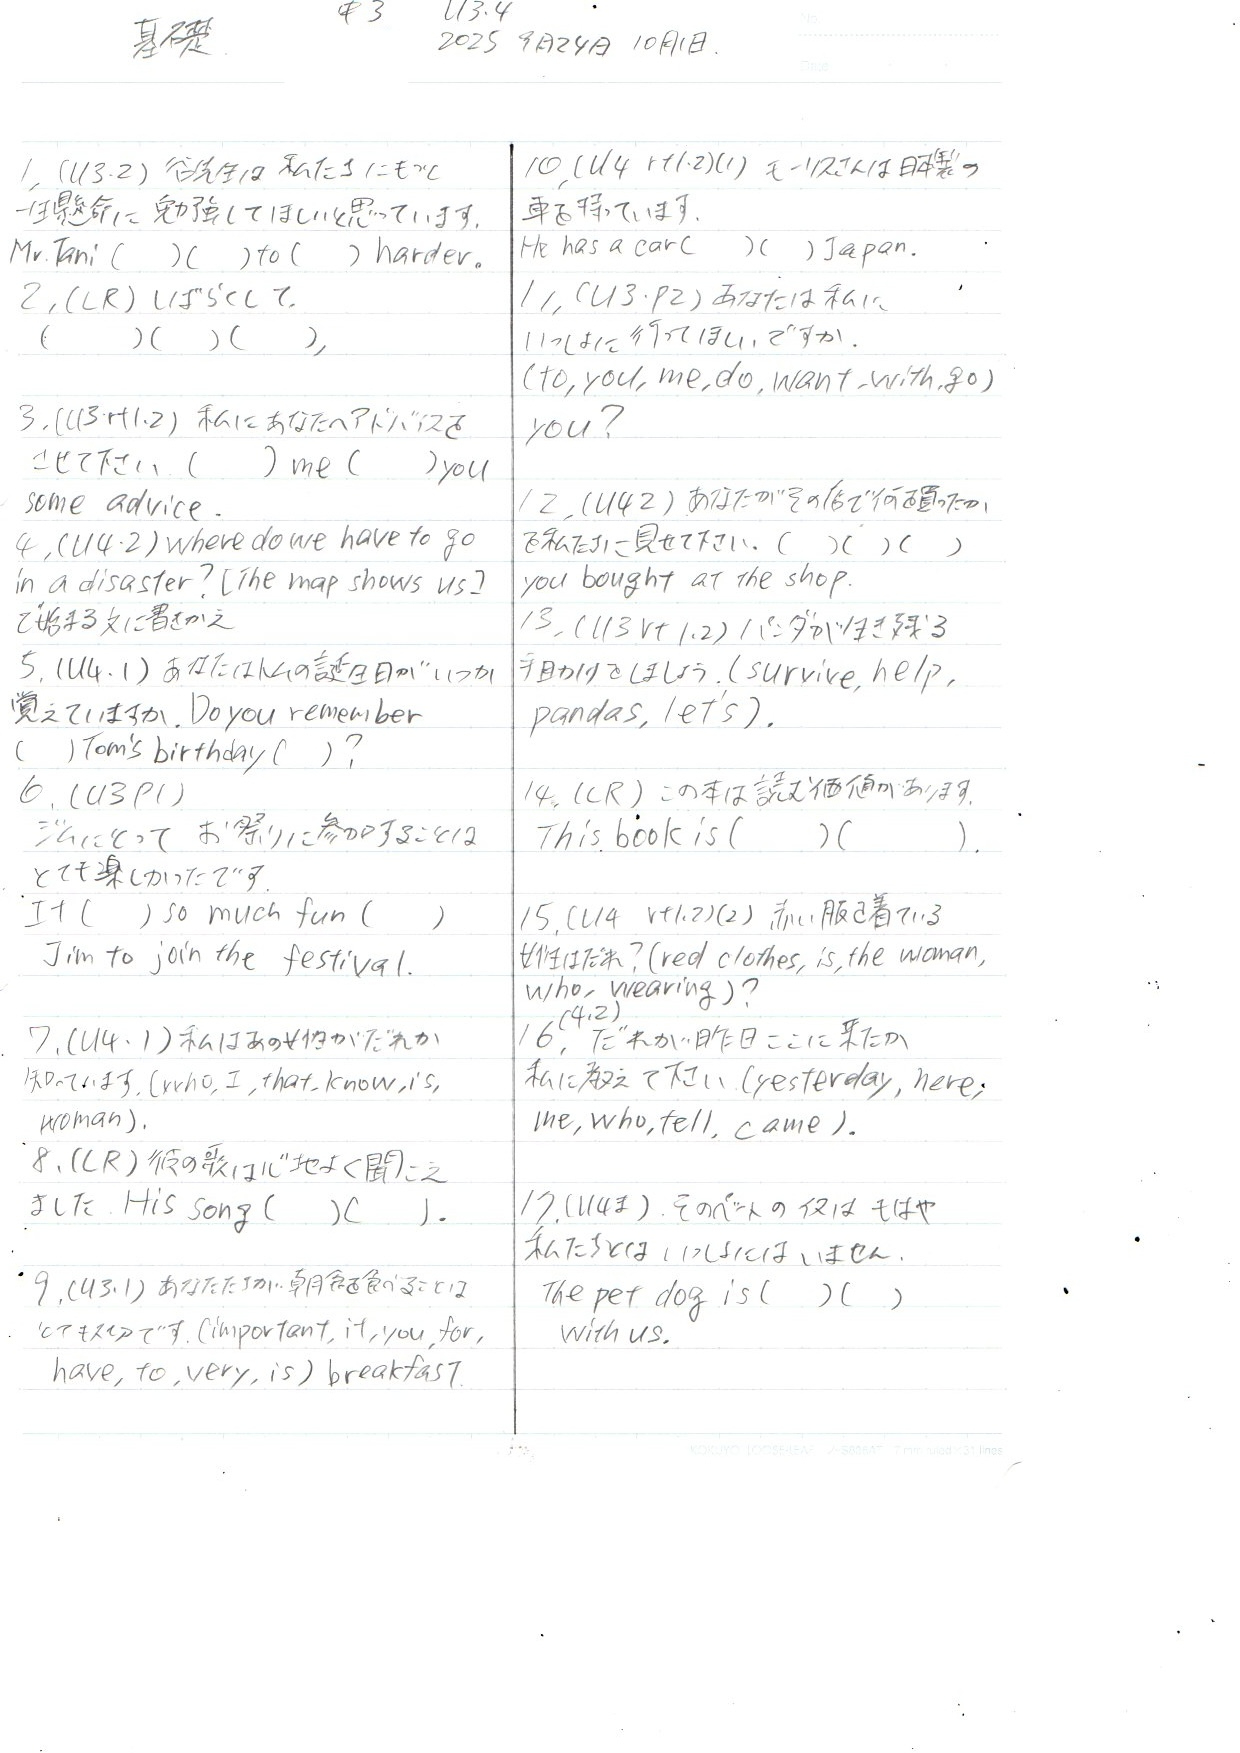 中3 U3.4
基礎 2025 9月24日 10月1日.
1, (U3.2) 谷先生は 私たちにもっと
一生懸命に 勉強してほしいと思っています.
Mr. Tani ( )( ) to ( ) harder.
2, (LR) しばらくして,
( )( )( ),
3, (U3.rt1.2) 私にあなたへアドバイスを
させて下さい. ( ) me ( ) you
some advice.
4, (U4.2) where do we have to go
in a disaster? [The map shows us]
で始まる文に書きかえ
5, (U4.1) あなたはトムの誕生日がいつか
覚えていますか. Do you remember
( ) Tom's birthday ( )?
6, (U3P1)
ジムにとって お祭りに参加することは
とても楽しかったです.
It ( ) so much fun ( )
Jim to join the festival.
7, (U4.1) 私はあの女性がだれか
知っています. (who, I, that, know, is,
woman).
8, (LR) 彼の歌は心地よく聞こえ
ました. His song ( )( ).
9, (U3.1) あなたたちが 朝食を食べることは
とても大切です. (important, it, you, for,
have, to, very, is) breakfast.
10, (U4 rt1.2)(1) モーリスさんは日本製の
車を持っています.
He has a car ( )( ) Japan.
11, (U3.P2) あなたは私に
いっしょに行ってほしいですか.
(to, you, me, do, want, with, go)
you?
12, (U42) あなたがその店で何を買ったか
を私たちに見せて下さい. ( )( )( )
you bought at the shop.
13, (U3 rt1.2) パンダが生き残る
手助けをしましょう. (survive, help,
pandas, let's).
14, (LR) この本は読む価値があります.
This book is ( )( ).
15, (U4 rt1.2)(2) 赤い服を着ている
女性はだれ? (red clothes, is, the woman,
who, wearing)?
16, (4.2) だれが昨日ここに来たか
私に教えて下さい (yesterday, here,
me, who, tell, came).
17, (U4ま). そのペットの犬は もはや
私たちとは いっしょにはいません.
The pet dog is ( )( )
with us.